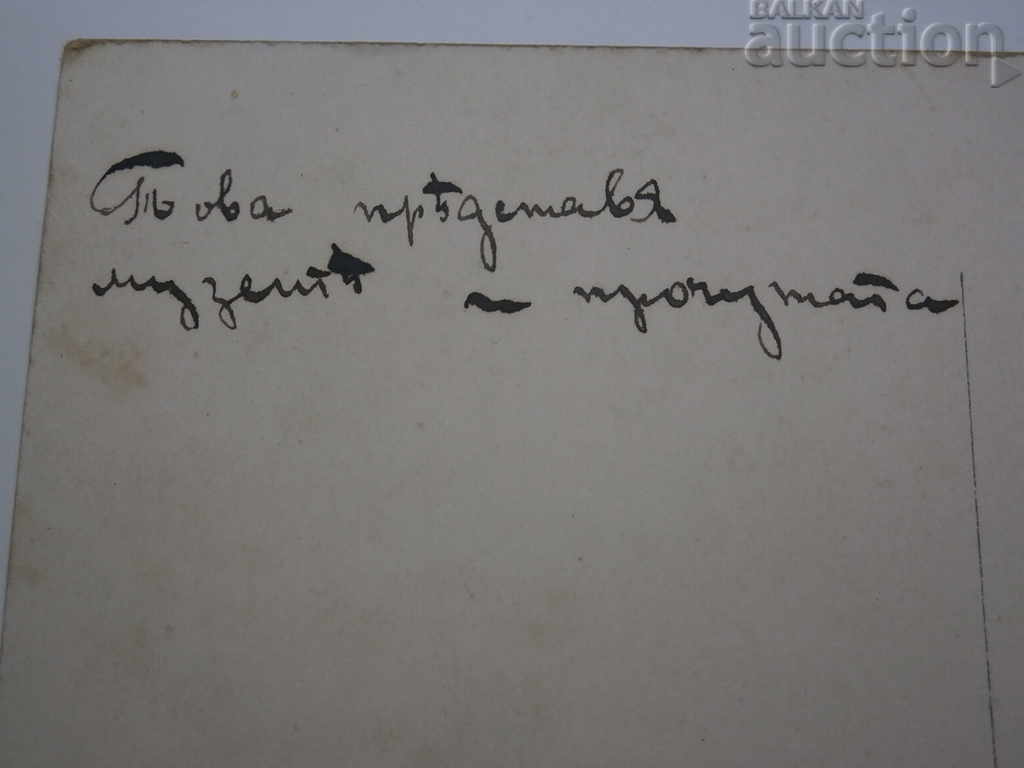 BALKAN
auction
Това прѣдставя
музеитѣ – прочутата